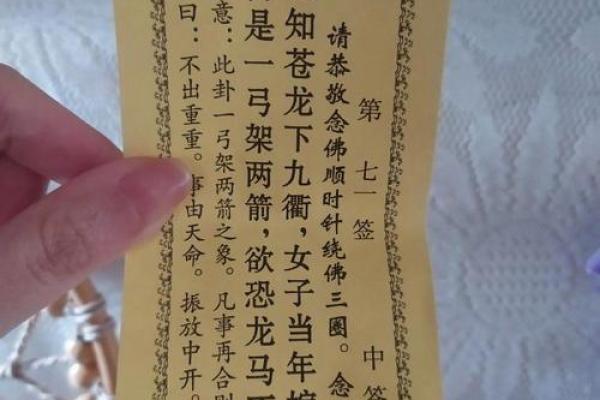 第七一签 中签
请恭敬念佛顺时针绕佛三圈。念
知苍龙下九衢，女子当年
是一弓架两箭，欲恐龙马
意：此卦一弓架两箭之象。凡事再合
曰：不出重重。事由天命。振放中开。